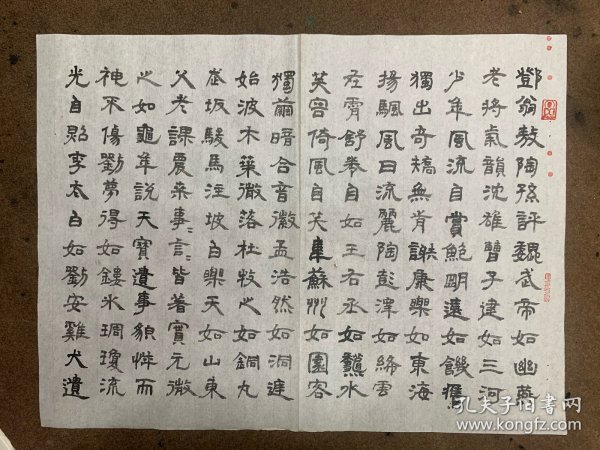 鄧翁敖陶孫評魏武帝如幽燕
老將氣韻沈雄曹子建如三河
少年風流自賞鮑明遠如饑鷹
獨出奇矯無歬謝康樂如東海
揚颿風日流麗陶彭澤如絳雲
在霄舒卷自如王右丞如龝水
芙容倚風自笑韋蘇州如園客
獨繭暗合音徽孟浩然如洞庭
始波木葉微落杜牧之如銅丸
走坂駿馬注坡白樂天如山東
父老課農桑事〻言〻皆著實元微
之如龜年說天寶遺事貌悴而
神不傷劉夢得如鏤氷琱瓊流
光自照李太白如劉安雞犬遺
孔夫子旧书网
www.kongfz.com